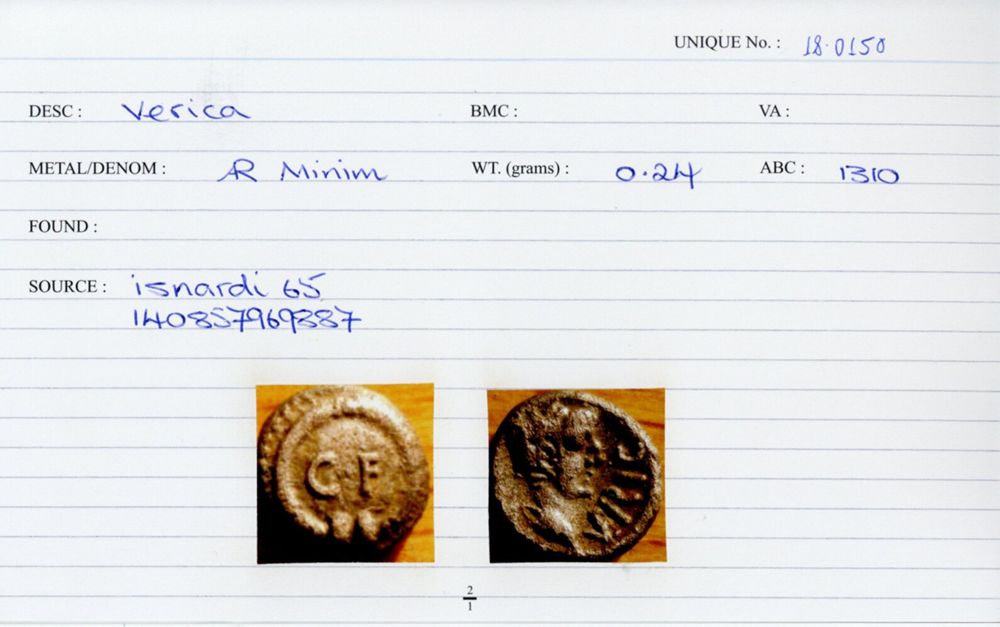 UNIQUE No. : 18.0150
DESC : Verica BMC : VA :
METAL/DENOM : AR Minim WT. (grams) : 0.24 ABC : 1310
FOUND :
SOURCE : isnardi 65
140857969887
C F
2
1